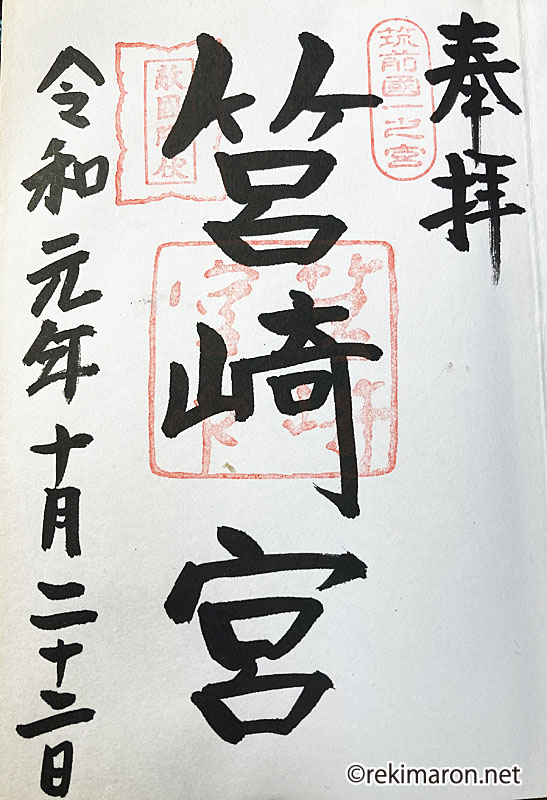 奉拝
筑前國一之宮
筥崎宮
敵國降伏
令和元年十月二十二日
©rekimaron.net